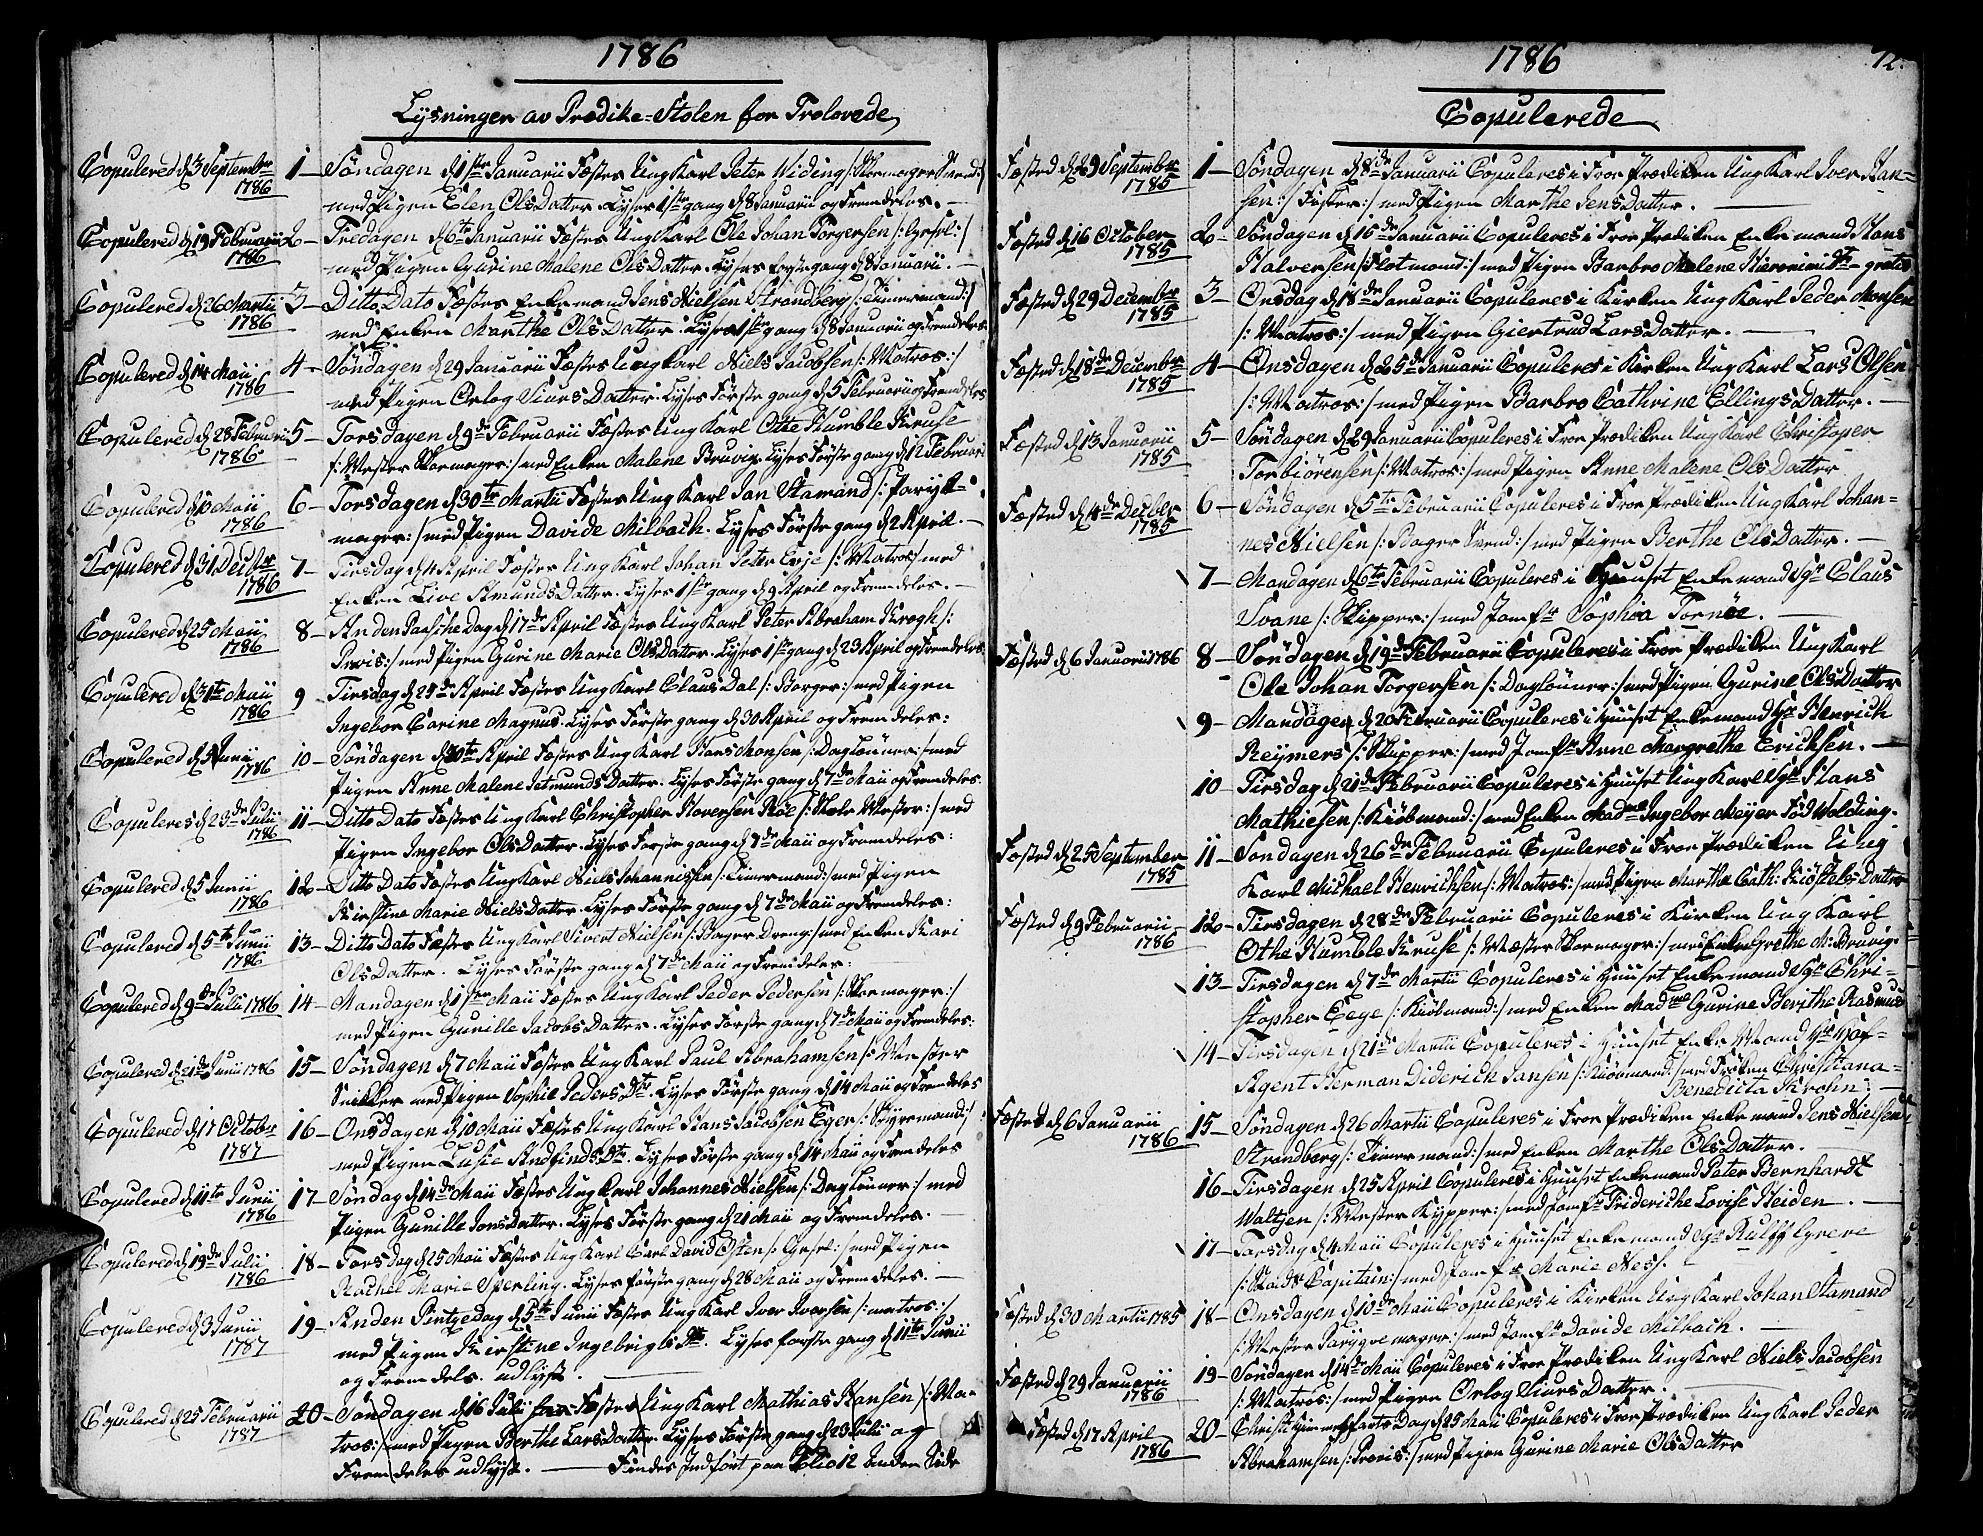 1786
Lysninger av Prædike-Stolen for Trolovede
Copulered d 3 Septembr 1786
1 – Søndagen d 1ste Januarii Fæstes Ung Karl Peter Widing /: Skomager Svend :/
med Pigen Elen OlsDatter. Lyses 1ste gang d 8 Januarii og Fremdeles. –
Copulered d 19 Februarii 1786
2 – Fredagen d 6te Januarii Fæstes Ung Karl Ole Johan Torgersen /: Gesel :/
med Pigen Gurine Malene OlsDatter. Lyses første gang d 8 Januarii. –
Copulered d 26 Martii 1786
3 – Ditto Dato Fæstes Enkemand Jens Nielsen Strandberg /: Timermand :/
med Enken Marthe OlsDatter. Lyses 1ste gang d 8 Januarii og Fremdeles
Copulered d 14 Maii 1786
4 – Søndagen d 29 Januarii Fæstes Ung Karl Niels Jacobsen /: Matros :/
med Pigen Orlog SiursDatter. Lyses Første gang d 5 Februarii og Fremdeles
Copulered d 28 Februarii 1786
5 – Torsdagen d 9de Februarii Fæstes Ung Karl Othe Humble Kruse
/: Mester Skomager :/ med Enken Malene Bruvig. Lyses Første gang d 12 Februarii
Copulered d 10 Maii 1786
6 – Torsdagen d 30te Martii Fæstes Ung Karl Jan Stamand /: Paryk-
mager :/ med Pigen Davide Milbach. Lyses Første gang d 2 April. –
Copulered d 31 Decbr 1786
7 – Tirsdag d 4 April Fæstes Ung Karl Johan Peter Eeje /: Matros :/ med
Enken Live AmundsDatter. Lyses 1ste gang d 9 April og Fremdeles. –
Copulered d 25 Maii 1786
8 – Anden Paaske Dag d 17de April Fæstes Ung Karl Peter Abraham Krogh /:
Provis :/ med Pigen Gurine Marie OlsDatter. Lyses 1ste gang d 23 April og Fremdeles
Copulered d 31te Maii 1786
9 Tirsdag d 25de April Fæstes Ung Karl Claus Dal /: Borger :/ med Pigen
Ingebor Carine Magnus. Lyses Første gang d 30 April og Fremdeles:
Copulered d 5 Junii 1786
10 – Søndagen d 30te April Fæstes Ung Karl Hans Monsen /: Daglønner :/ med
Pigen Anne Malene JetmundsDatter. Lyses Første gang d 7de Maii og Fremdeles.
Copuleres d 23de Julii 1786
11 – Ditto Dato Fæstes Ung Karl Christopher Hoversen Røe /: Skole Mester :/ med
Pigen Ingebor OlsDatter. Lyses Første gang d 7de Maii og Fremdeles:
Copulered d 5 Junii 1786
12 – Ditto Dato Fæstes Ung Karl Niels Johannessen /: Timermand :/ med Pigen
Kirstine Marie NielsDatter. Lyses Første gang d 7de Maii og Fremdeles:
Copulered d 5te Junii 1786
13 – Ditto Dato Fæstes Ung Karl Sivert Nielsen /: Bager Dreng :/ med Enken Kari
OlsDatter. Lyses Første gang d 7de Maii og Fremdeles:
Copulered d 9de Julii 1786
14 – Mandagen d 1ste Maii Fæstes Ung Karl Peder Pedersen /: Skomager :/
med Pigen Gunille JacobsDatter. Lyses Første gang d 7de Maii og Fremdeles:
Copulered d 21de Junii 1786
15 – Søndagen d 7 Maii Fæstes Ung Karl Paul Abrahamsen /: Mester
Snikker med Pigen Sophie Peders Dtr. Lyses Første gang d 14 Maii og Fremdeles
Copulered d 17 October 1787
16 – Onsdagen d 10 Maii Fæstes Ung Karl Hans Jacobsen Eger /: Styrmand :/
med Pigen Lusie Andfinds Dtr. Lyses Første gang d 14 Maii og Fremdeles
Copulered d 11te Junii 1786
17 – Søndag d 14de Maii Fæstes Ung Karl Johannes Nielsen /: Daglønner :/ med
Pigen Gunille JonsDatter. Lyses Første gang d 21 Maii og Fremdeles. –
Copulered d 19de Julii 1786
18 – Torsdag d 25 Maii Fæstes Ung Karl Carl David Osten /: Gesel :/ med Pigen
Rachel Marie Sperling. Lyses første gang d 28 Maii og Fremdeles. –
Copulered d 3 Junii 1787
19 – Anden Pintze Dag d 5te Junii Fæstes Ung Karl Iver Iversen /: matros :/
med Pigen Kirstine Ingebrigts Dtr. Lyses første gang d 11te Junii
og Fremdels. udlyst.
Copulered d 25 Februarii 1787
20 – Søndagen d 16 Julii Fæstes Ung Karl Mathias Hansen /: Ma-
tros :/ med Pigen Berthe LarsDatter. Lyses Første gang d 23 Julii og
Fremdeles udlyst. – Findes Indført paa Folio 12 Anden Side
1786
12.
Copulerede
Fæsted d 29 Septembr 1785
1 – Søndagen d 8de Januarii Copuleres i Froe Prædiken Ung Karl Iver Han-
sen /: Fisker :/ med Pigen Marthe JensDatter. –
Fæsted d 16 October 1785
2 – Søndagen d 15de Januarii Copuleres i Froe Prædiken Enkemand Hans
Halversen /: Flotmand :/ med Pigen Barbro Malene Hieronimi Dtr – gratis
Fæsted d 29 Decembr 1785
3 – Onsdag d 18de Januarii Copuleres i Kirken Ung Karl Peder Monsen
/: Matros :/ med Pigen Giertrud LarsDatter. –
Fæsted d 18de Decembr 1785
4 – Onsdagen d 25de Januarii Copuleres i Kirken Ung Karl Lars Olsen
/: Matros :/ med Pigen Barbro Cathrine EllingsDatter. –
Fæsted d 13 Januarii 1785
5 – Søndagen d 29 Januarii Copuleres i Froe Prædiken Ung Karl Christoper
Torbiørensen /: Matros :/ med Pigen Anne Malene OlsDatter
Fæsted d 4de Decbr 1785
6 – Søndagen d 5te Februarii Copuleres i Froe Prædiken Ung Karl Johan-
nes Nielsen /: Bager Svend :/ med Pigen Berthe OlsDatter. –
7 – Mandagen d 6te Februarii Copuleres i Huuset Enkemand Sgr Claus
Svane /: Skipper :/ med Jomfr Sophia Tornöe.
Fæsted d 6 Januarii 1786
8 – Søndagen d 19de Februarii Copuleres i Froe Prædiken Ung Karl
Ole Johan Torgersen /: Daglønner :/ med Pigen Gurine OlsDatter
9 – Mandagen d 20 Februarii Copuleres i Huuset Enkemand Sgr Henrich
Reymers /: Skipper :/ med Jomfr Anne Margrethe Erichsen. –
10 – Tirsdag d 21de Februarii Copuleres i Huuset Ung Karl Sgr Hans
Mathiesen /: Kiøbmand :/ med Enken Madme Ingebor Meyer Fød Wolding.
Fæsted d 25 September 1785
11 – Søndagen d 26de Februarii Copuleres i Froe Prædiken Ung
Karl Michael Henrichsen /: Matros :/ med Pigen Marthe Cath: KiøstelsDatter
Fæsted d 9 Februarii 1786
12 – Tirsdagen d 28de Februarii Copuleres i Kirken Ung Karl
Othe Humble Kruse /: Mæster Skomager :/ med Enken Grethe M: Bruvig.
13 – Tirsdagen d 7de Martii Copuleres i Huuset Enkemand Sgr Chri-
stopher Eege /: Kiøbmand :/ med Enken Madme Gurine Berithe Rasmus
14 – Tirsdagen d 21de Martii Copuleres i Huuset Enke Mand Hr Hof-
Agent Herman Diderich Jansen /: Kiøbmand :/ med Frøken Christiana
Benedicta Krohn. –
Fæsted d 6 Januarii 1786
15 – Søndagen d 26 Martii Copuleres i Froe Prædiken Enkemand Jens Nielsen
Strandberg /: Timermand :/ med Enken Marthe OlsDatter. –
16 – Tirsdagen d 25 April Copuleres i Huuset Enkemand Peter Bernhardt
Waltjen /: Mester Kypper :/ med Jomfr Friderithe Lovise Heiden –
17 – Torsdag d 4 Maii Copuleres i Huuset Enkemand Sgr Rulff Grewe
/: Stads Capitain :/ med Jomfr Marie Ness. –
Fæsted d 30 Martii 1785
18 – Onsdagen d 10de Maii Copuleres i Kirken Ung Karl Johan Stamand
/: Mester Parygvemager :/ med Jomfr Davide Milbach. –
Fæsted d 29 Januarii 1786
19 – Søndagen d 14de Maii Copuleres i Froe Prædiken Ung Karl Niels Jacobsen
/: Matros :/ med Pigen Orlog SiursDatter. –
Fæsted d 17 April 1786
20 – Christi Himmelfarts Dag d 25 Maii Copuleres i Froe Prædiken Ung Karl Peder
Abrahamsen /: Provis :/ med Pigen Gurine Marie OlsDatter